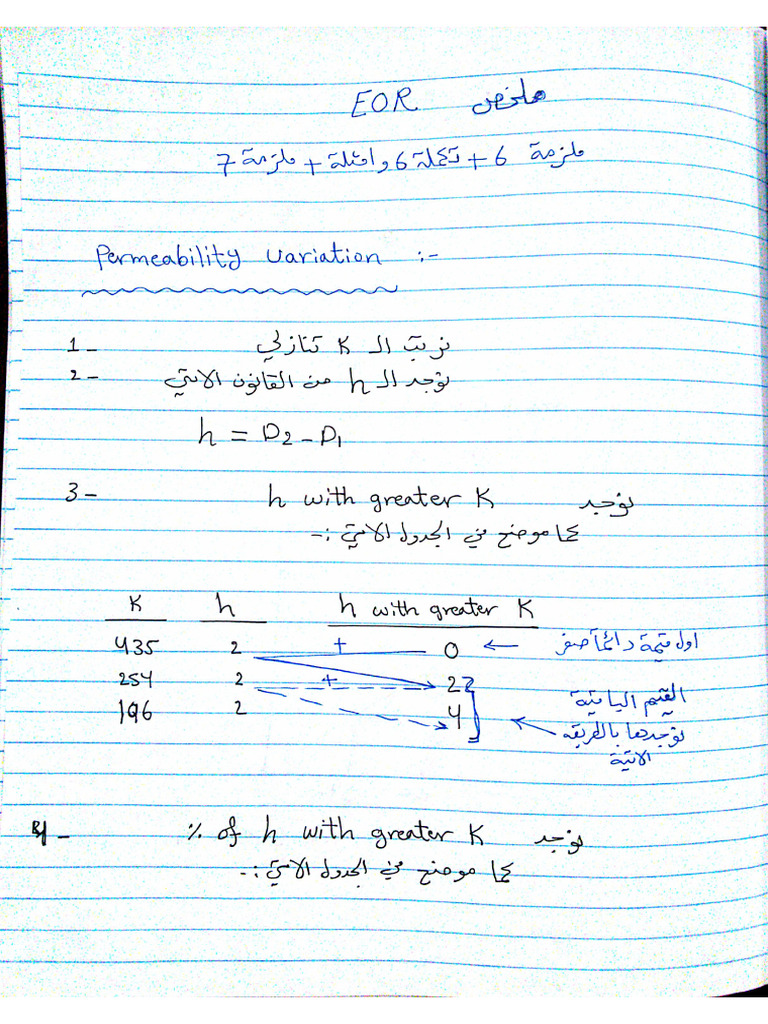 ملخص EOR
ملزمة 6 + تكملة 6 وامثلة + ملزمة 7
Permeability variation :-
1 - نرتب الـ K تنازلي
2 - نوجد الـ h من القانون الاتي
h = D2 - D1
3 - نوجد h with greater K
كما موضح في الجدول الاتي :-
K h h with greater K
435 2 + 0 ← اول قيمة دائماً صفر
254 2 + 2
196 2 4
القيم الباقية
نوجدها بالطريقه
الاتية
4 - نوجد % of h with greater K
كما موضح في الجدول الاتي :-